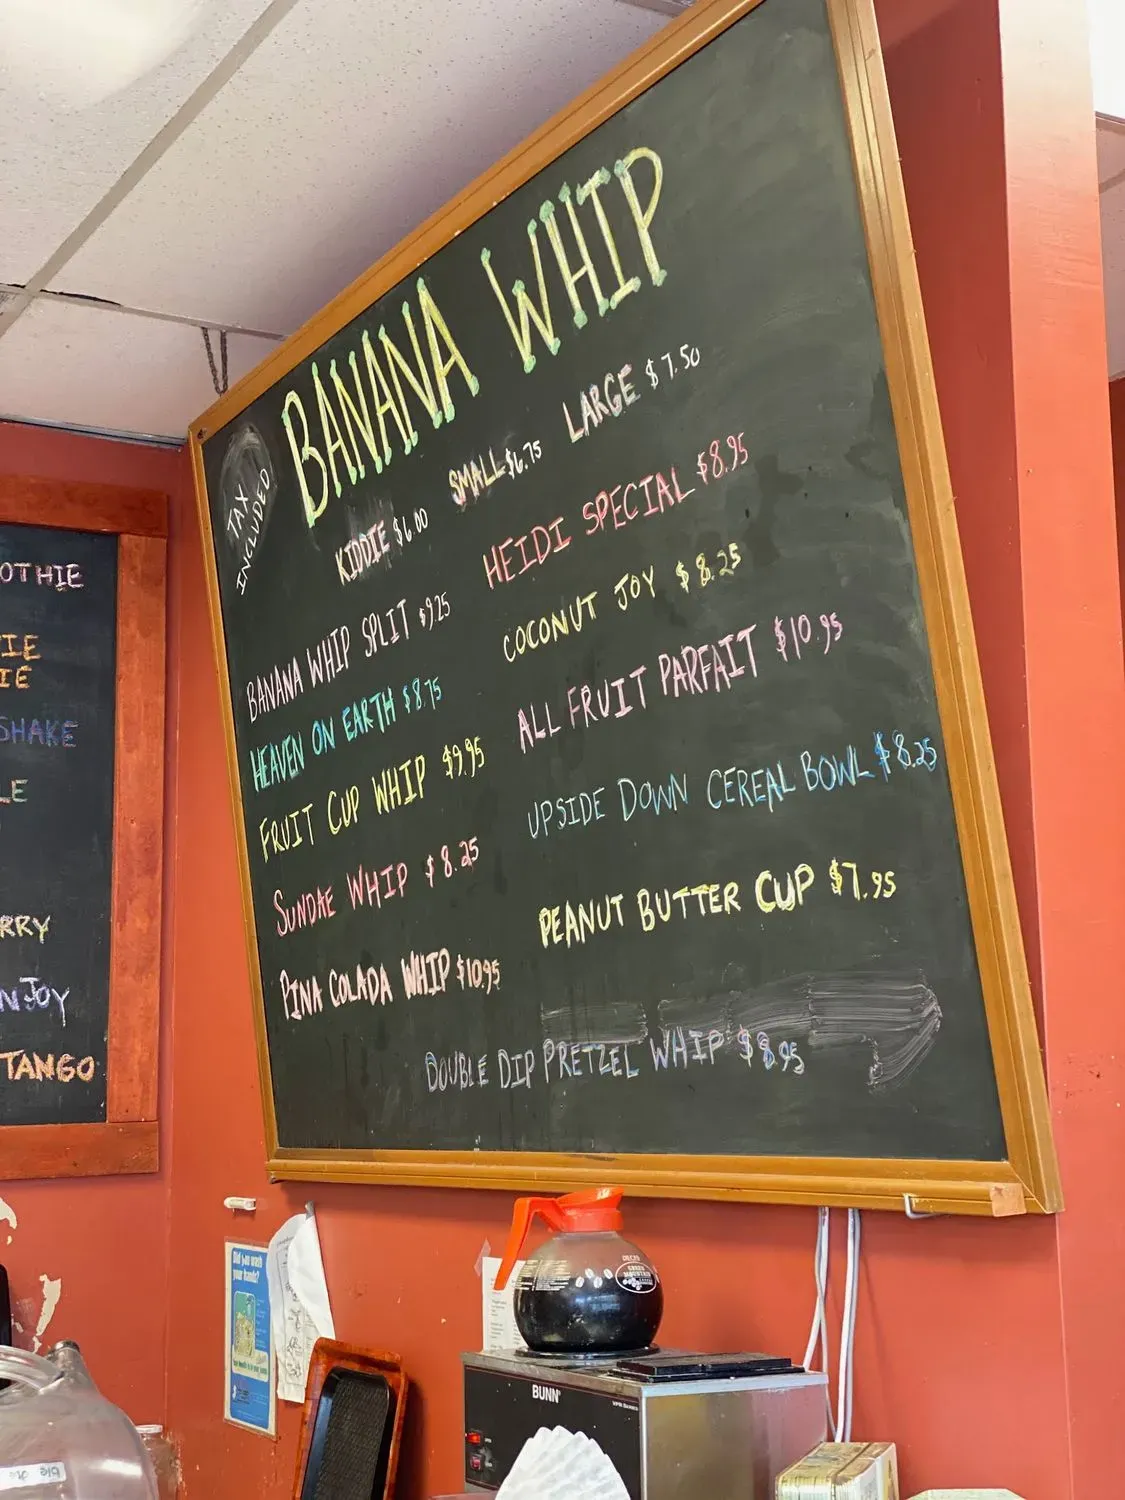 BANANA WHIP
TAX
INCLUDED
KIDDIE $6.00
SMALL $6.75
LARGE $7.50
BANANA WHIP SPLIT $9.25
HEAVEN ON EARTH $8.75
FRUIT CUP WHIP $9.95
SUNDAE WHIP $8.25
PINA COLADA WHIP $10.95
HEIDI SPECIAL $8.95
COCONUT JOY $8.25
ALL FRUIT PARFAIT $10.95
UPSIDE DOWN CEREAL BOWL $8.25
PEANUT BUTTER CUP $7.95
DOUBLE DIP PRETZEL WHIP $8.95
OTHIE
IE
IE
SHAKE
LE
RRY
NJOY
TANGO
Did you wash
your hands?
DECAF
GREEN
MOUNTAIN
BUNN